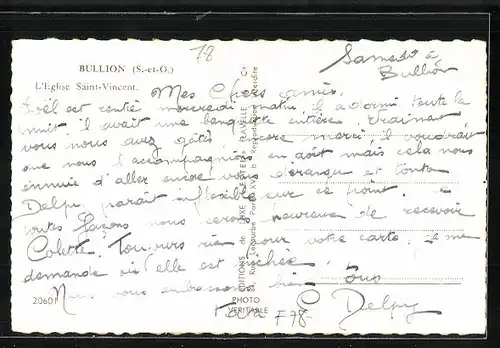 78
BULLION (S.-et-O.)
L'Eglise Saint-Vincent.
Samedi à
Bullion
Mes Chers amis.
Joël est rentré mercredi matin, il a dormi toute la
nuit il avait une banquette entière. Vraiment
vous nous avez gâtés encore merci, il voudrait
que nous l'accompagnions en août mais cela nous
ennuie d'aller encore vous déranger et tonton
Delpy paraît inflexible sur ce point.
toutes façons nous serons heureux de recevoir
Colette. Toujours rien pour votre carte, je me
demande où elle est
Nous vous embrassons bien tous
C Delpy
20601
PHOTO
VERITABLE
F78